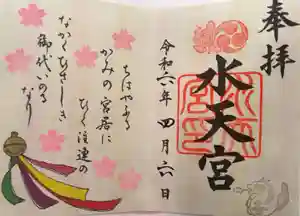 奉拝
水天宮
令和六年 四月六日
ちはやふる
かみの宮居に
ひく注連の
ながくひさしき
御代いのる
なり